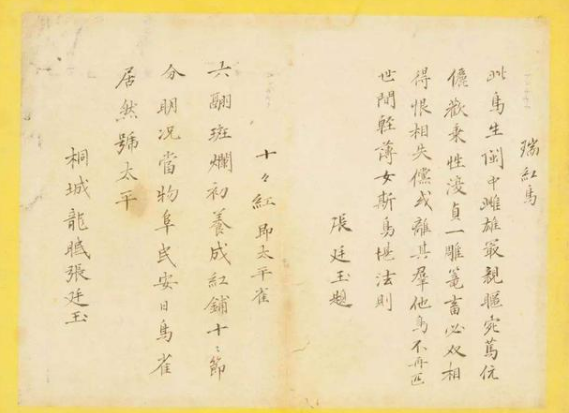 瑞紅鳥
此鳥生閩中雌雄最親暱宛篤伉
儷歡秉性復貞一雕篭畜必双相
得恨相失儻或離其羣他鳥不再匹
世間輕薄女斯鳥堪法則
張廷玉題
十々紅 即太平雀
六翮斑斕初養成紅鋪十二節
分明况當物阜民安日鳥雀
居然號太平
桐城龍眠張廷玉